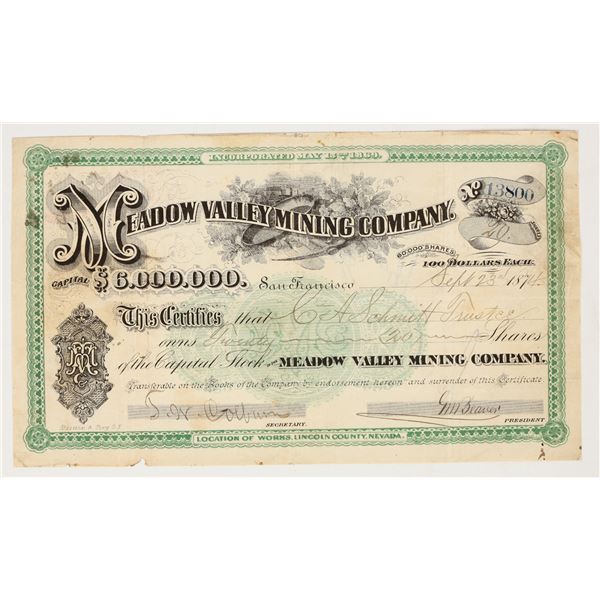 INCORPORATED MAY 13TH 1869.
No 13800
MEADOW VALLEY MINING COMPANY.
20 SHARES
60,000 SHARES
CAPITAL $6.000.000. 100 DOLLARS EACH.
San Francisco Sept 23d 1874.
This Certifies that C A Schmitt Trustee
owns Twenty (20) Shares
of the Capital Stock of the MEADOW VALLEY MINING COMPANY.
Transferable on the Books of the Company by endorsement hereon and surrender of this Certificate.
T. W. Colburn
SECRETARY. PRESIDENT
LOCATION OF WORKS, LINCOLN COUNTY, NEVADA.